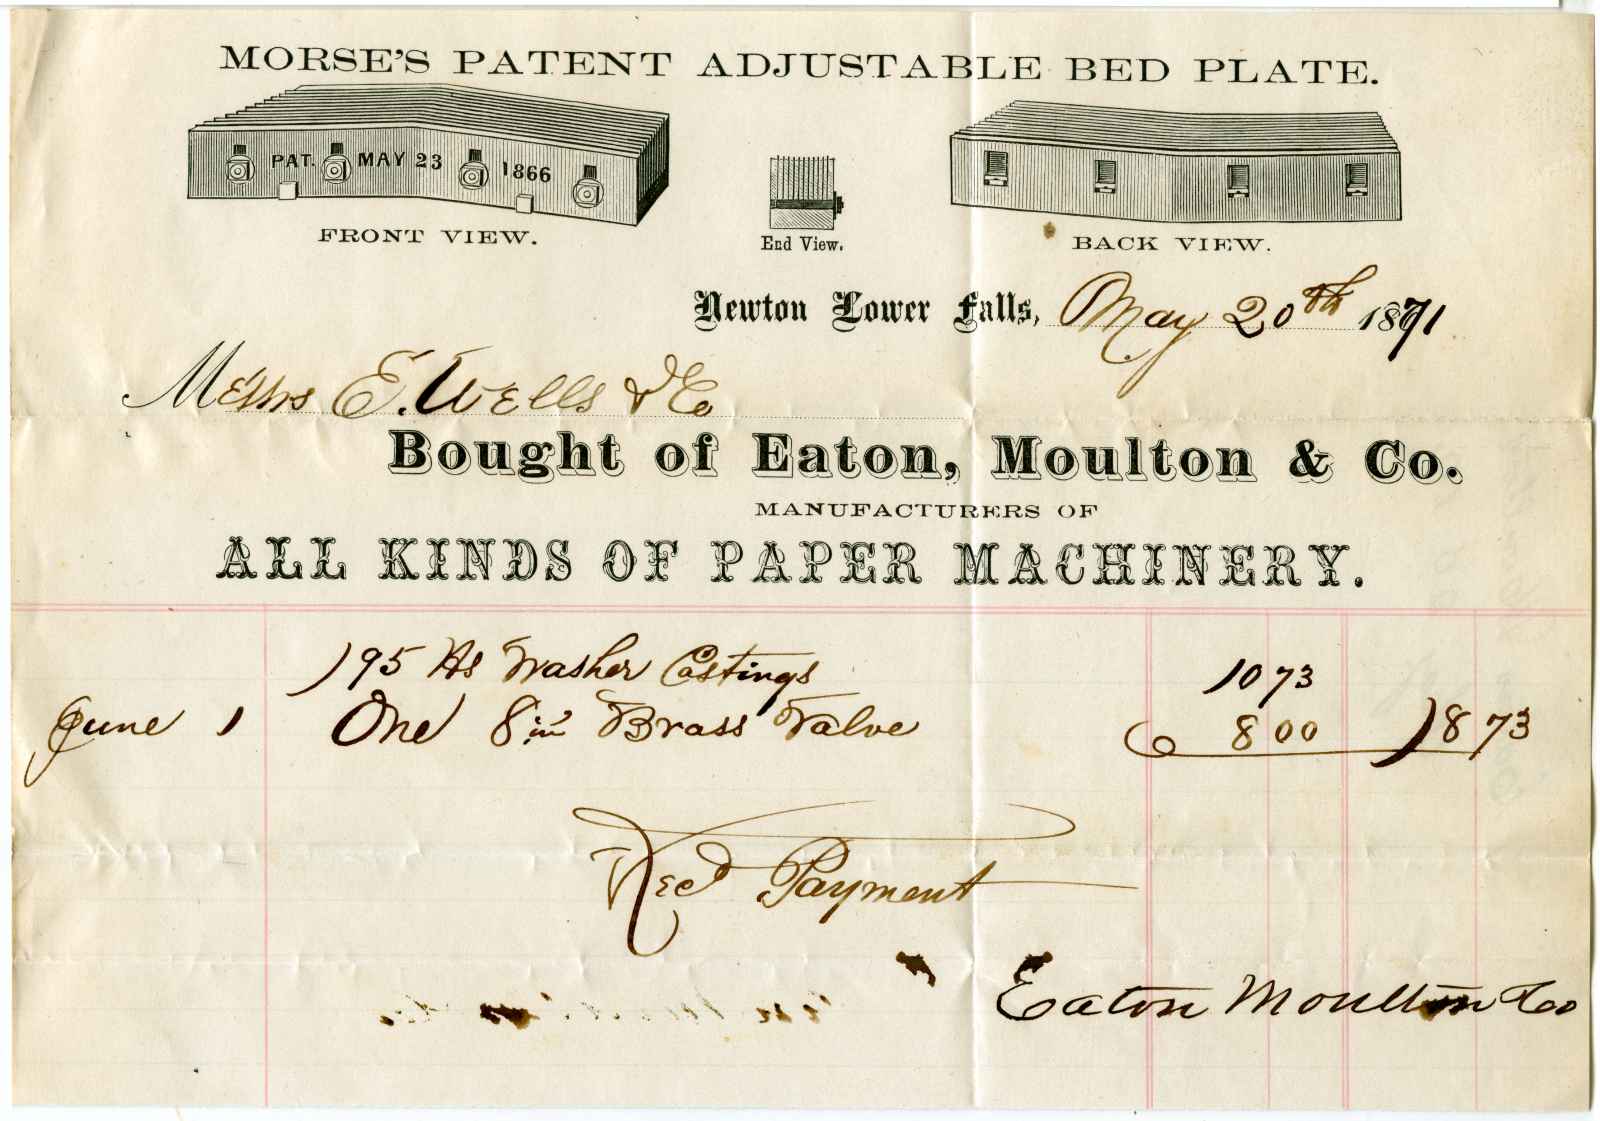 MORSE'S PATENT ADJUSTABLE BED PLATE.
PAT. MAY 23 1866
FRONT VIEW.
End View.
BACK VIEW.
Newton Lower Falls, May 20th 1871
Messrs E. Wells & Co
Bought of Eaton, Moulton & Co.
MANUFACTURERS OF
ALL KINDS OF PAPER MACHINERY.
195 lbs Washer Castings 10 73
June 1 One 8 in Brass Valve 8 00 18 73
Recd Payment
Eaton Moulton & Co